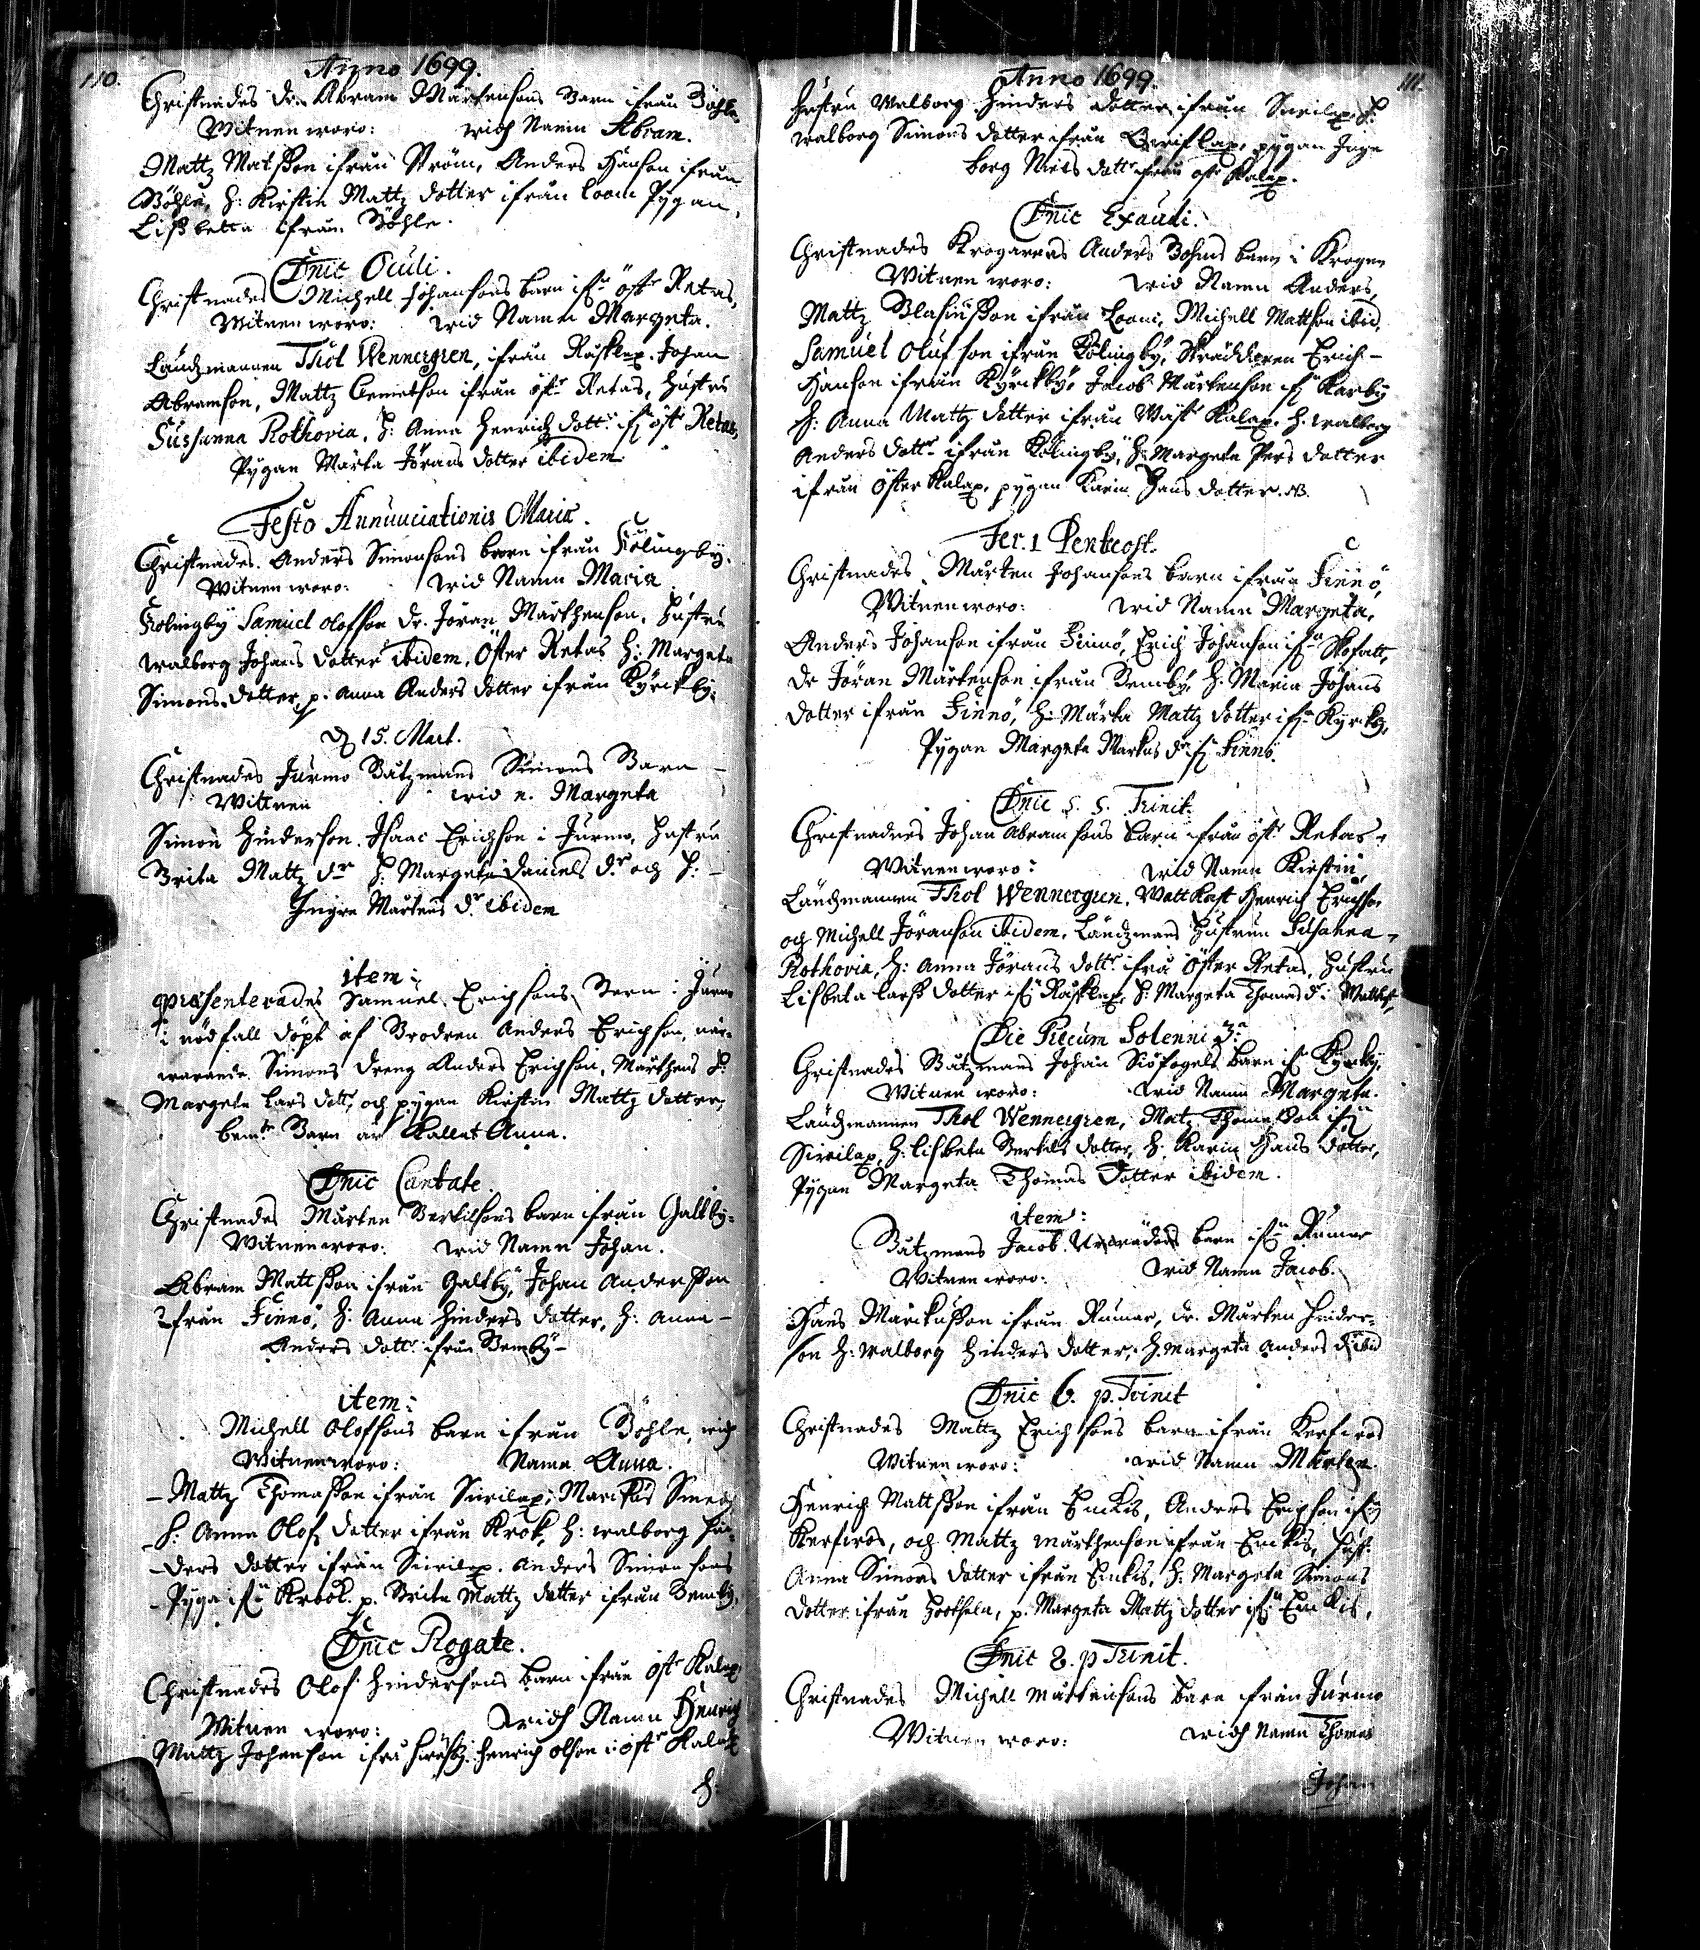 110.
Anno 1699.
Christnades Dr. Abram Mårtensons Barn ifrån Böhle
Witnen woro: widh Namn Abram.
Mattz Matsson ifrån Ström, Anders Hanson ifrån
Böhle, H: Kirstin Mattz dotter ifrån Loom Pygan
Lissbetta ifrån Böhle.
Dnic Oculi.
Christnades Michell Johansons barn ifn östr Retas,
Witnen woro: wid Namn Margeta.
Ländzmannen Thol Wennergren, ifrån Johan
Abramson, Mattz Clemetson ifrån östr Retas, hustru
Sussanna Rothovia, H: Anna Henrich dottr ifn öst Retas,
Pygan Marta Jörans dotter ibidem
Festo Annunciationis Mariæ.
Christnades Anders Simonsons barn ifrån Kölingby.
Witnen woro: wid Namn Maria
Kolingby Samuel olofson Dr. Jöran Mårthenson, hustru
walborg Johans dotter ibidem, Öster Retas H: Margeta
Simons dotter, p. Anna Anders dotter ifrån Kyrckby.
D 15. Mart.
Christnades Jurmo Båtzmans Simons Barn
Wittnen wid n. Margeta
Simon Hinderson. Isaac Erichson i Jurmo, hustru
Brita Mattz dr H: Margeta Daniels dr och H:
Ingre Mårtens dr ibidem
item:
præsenterades Samuel Erichsons Barn i Jurmo
i nödfall döpt af Brodren Anders Erichson, när-
warande Simons dreng Anders Erichson, Mårthens H:
Margeta Lars dottr, och pygan Kirstin Mattz dotter,
bemte Barn är Kallat Anna.
Dnic Cantate.
Christnades Mårten Bertilsons barn ifrån Galtby.
Witnen woro: wid Namn Johan.
Abram Mattsson ifrån Galtby, Johan Andersson
ifrån Finnö, H: Anna Hinders dotter, H: Anna
Anders dottr ifrån Bemby
item:
Michell Olofsons barn ifrån Böhle, widh
Witnen woro: Namn Anna.
Mattz Thomasson ifrån Siwilax, Marckus Simons
H: Anna Olofz dotter ifrån Krok, H: walborg Hin-
ders dotter ifrån Siwilax. Anders Simonsons
Pyga ifn Krook. p. Brita Mattz dotter ifrån Bemby.
Dnic Rogate.
Christnades Olof Hindersons barn ifrån östr Kalax
Witnen woro: widh Namn Henrich
Mattz Johanson ifrå Henrich olson i östr Kalax
H:
111.
Anno 1699.
Hustru Walborg Hinders dotter ifrån Siwilax, H:
walborg Simons dotter ifrån pygan Inge
borg Niels dottr ifrån östr Kalax.
Dnic Exaudi.
Christnades Krogarens Anders Bohms barn i Krogen
Witnen woro: wid Namn Anders,
Mattz Blasiusson ifrån Loom, Michell Mattson ibid,
Samuel Olufson ifrån Kölingby, Skräddaren Erich
Hanson ifrån Kyrckby, Jacob Mårtenson ifn Karby
H: Anna Mattz dotter ifrån Wäst Kalax, H. walborg
Anders dottr ifrån Kölingby, H: Margeta Pers dotter
ifrån Öster Kalax, pygan Karin Hans dotter. ib.
Fer. 1 Pentecost.
Christnades Mårten Johansons barn ifrån Finnö,
Witnen woro: wid Namn Margeta,
Anders Johanson ifrån Finnö, Erich Johanson ifn
Dr Jöran Mårtenson ifrån Bemby, H: Maria Johans
dotter ifrån Finnö, H: Märta Mattz dotter ifn Kyrckby,
Pygan Margeta Markus dr ifn Finnö.
Dnic S. S. Trinit.
Christnades Johan Abramsons barn ifrån östr Retas,
Witnen woro: wid Namn Kirstin,
Ländzmannen Thol Wennergren, Henrich Erichson
och Michell Jöranson ibidem, Ländzmans hustrun Susanna
Rothovia, H: Anna Jörans dottr ifrå Öster Retas, hustru
Lissbeta Larss dotter ifn H: Margeta Thomas dr i
Die Precum Solenni 3:a
Christnades Båtzmans Johan Siöfogels barn ifn Kyrckby
Witnen woro: wid Namn Margeta.
Ländzmannen Thol Wennergren, Matz Thomasson ifn
Siwilax, H: Lissbeta Bertils dotter, H: Karin Hans dotter,
Pygan Margeta Thomas Dotter ibidem.
item:
Båtzmans Jacob barn ifn Rumar
Witnen woro: wid Namn Jacob.
Hans Marckusson ifrån Rumar, Dr. Mårten Hinder-
son H: walborg Hinders dotter, H. Margeta Anders dr ibid
Dnic 6. p. Trinit
Christnades Mattz Erichsons barn ifrån Kerfiros
Witnen woro: wid Namn Mårten.
Henrich Mattsson ifrån Enckis, Anders Erichson ifn
Kerfiros, och Mattz Mårthenson ifrån Enckis, hust:
Anna Simons dotter ifrån Enkis, H: Margeta Simons
dotter ifrån p. Margeta Mattz dotter ifn Enckis,
Dnic 8. p Trinit.
Christnades Michell Mårtensons barn ifrån Jurmo
Witnen woro: widh Namn Thomas
Johan